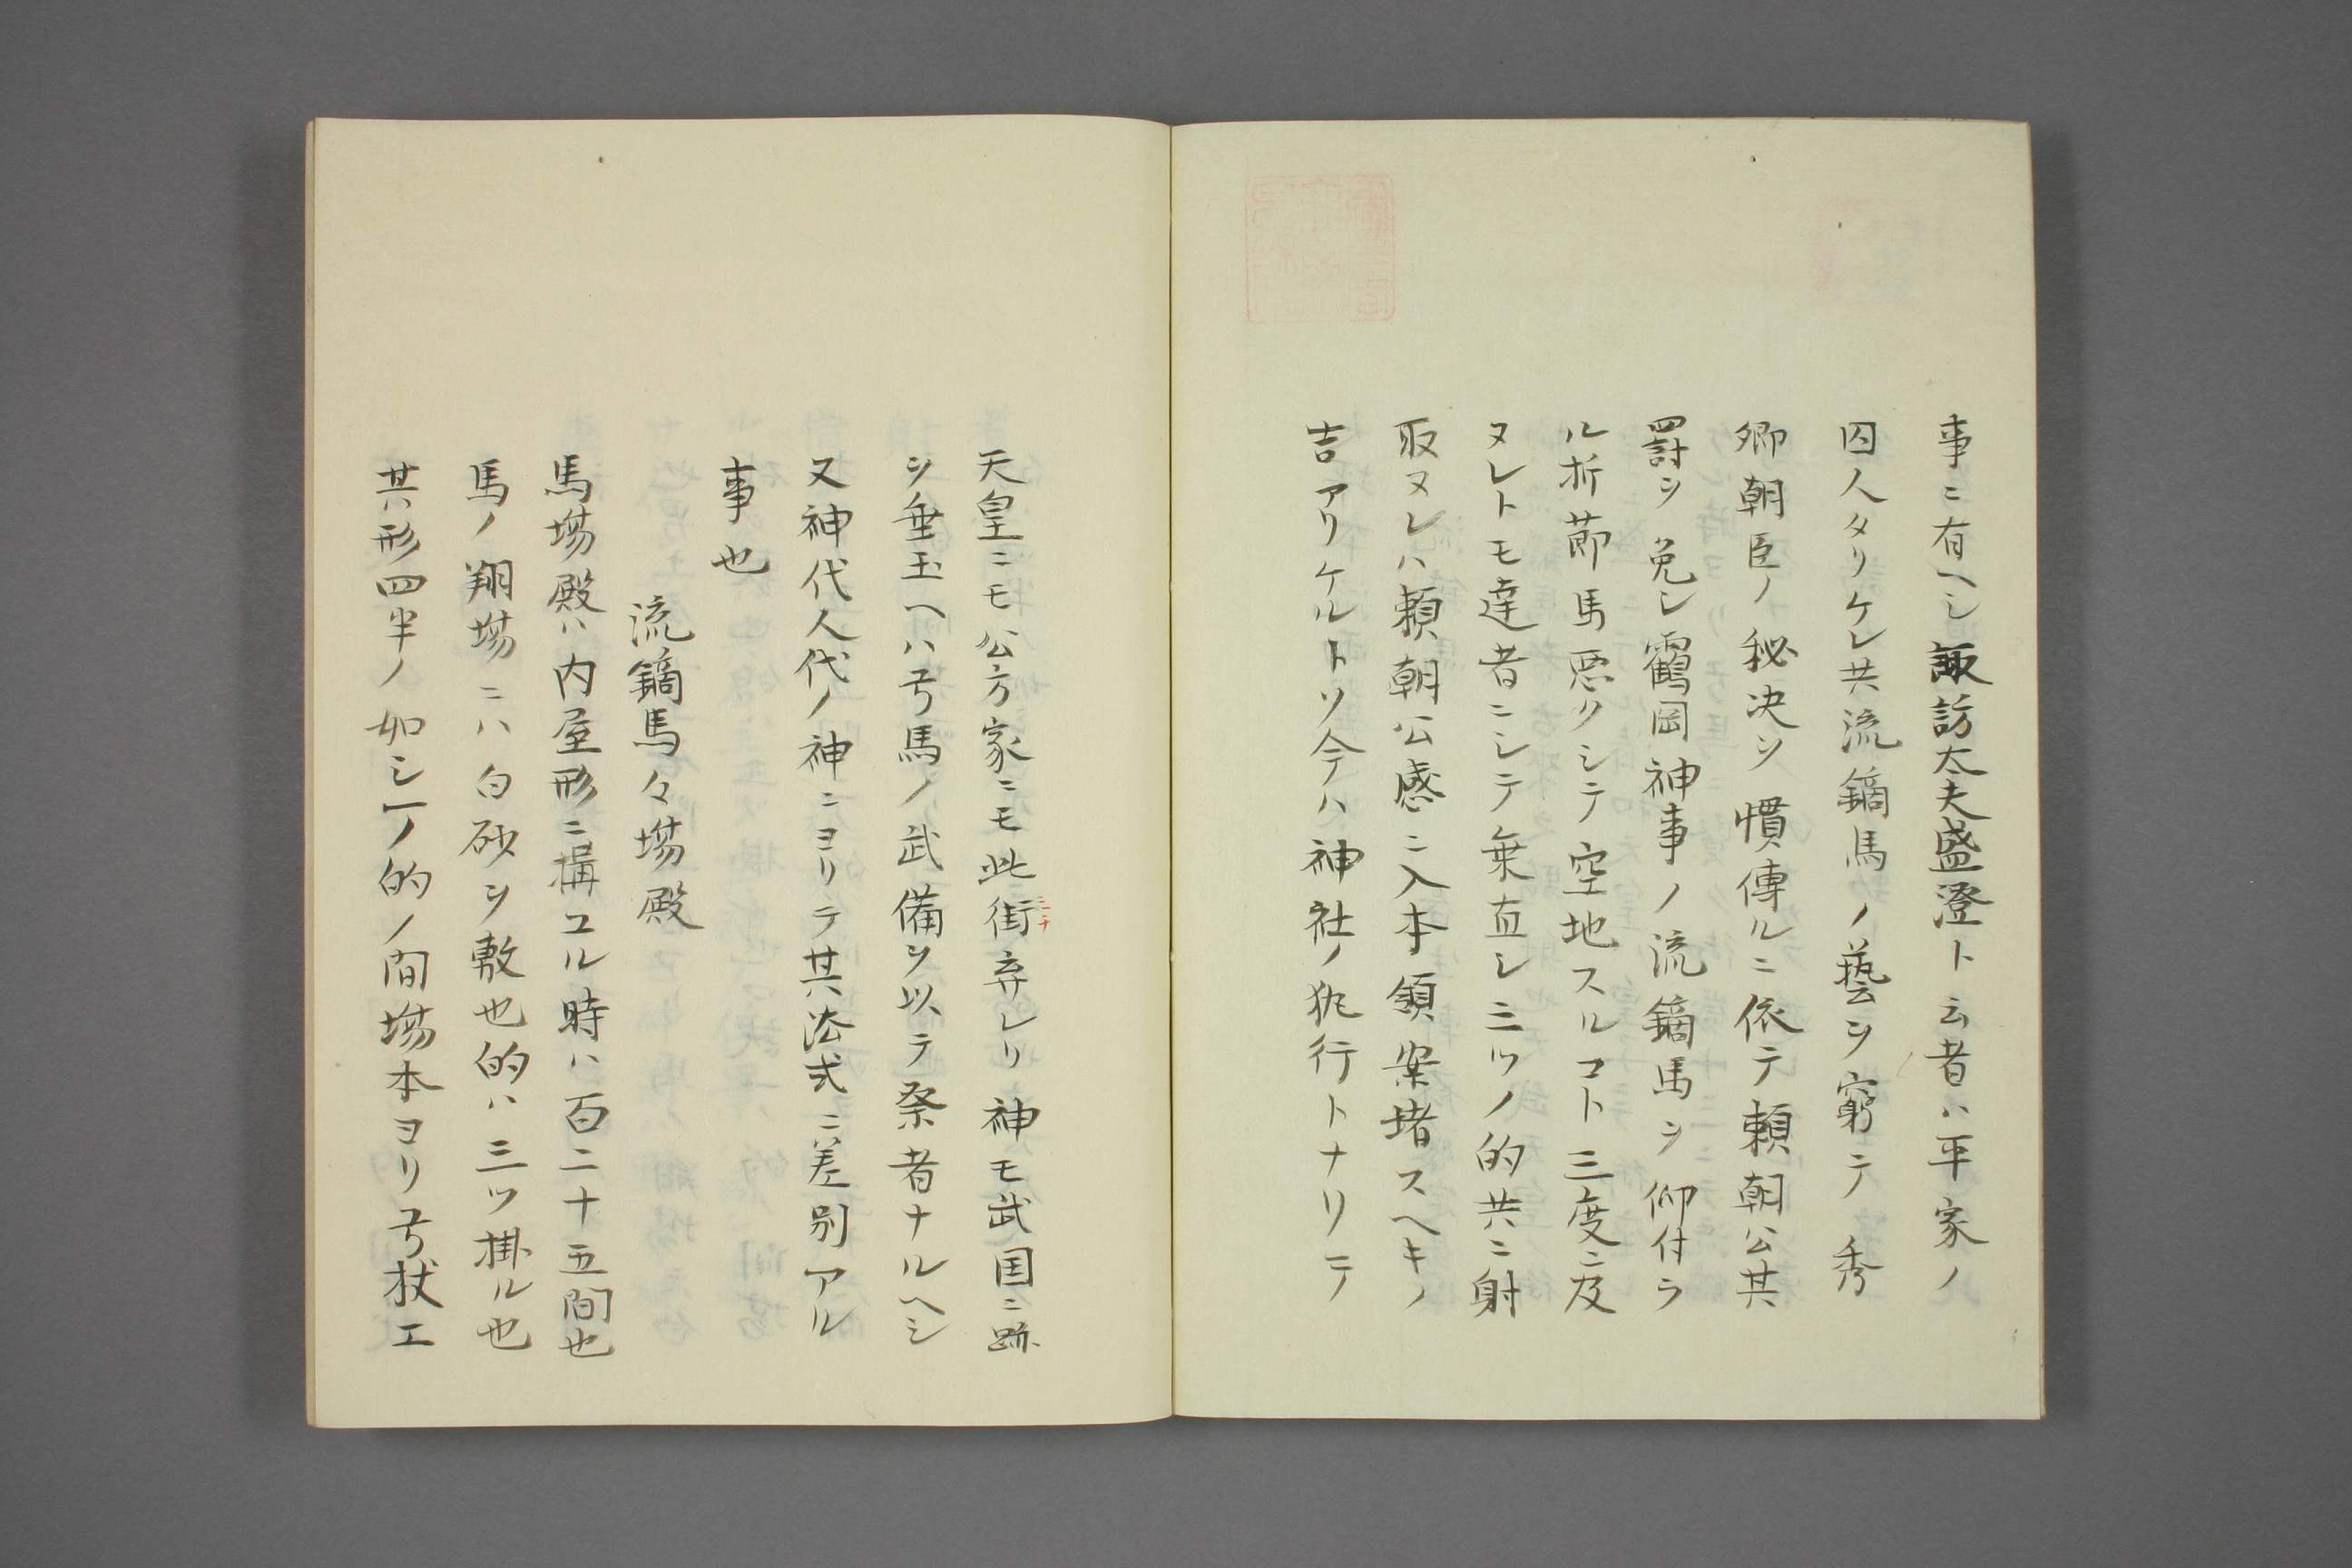 事ニ有ヘシ諏訪太夫盛澄ト云者ハ平家ノ
囚人タリケレ共流鏑馬ノ藝ヲ窮テ秀
郷朝臣ノ秘决ヲ慣傳ルニ依テ頼朝公其
罸ヲ免シ鶴岡神事ノ流鏑馬ヲ仰付ラ
ル折節馬悪クシテ空地スルコト三度ニ及
ヌレトモ達者ニシテ乗直シ三ツノ的共ニ射
取ヌレハ頼朝公感ニ入本領案堵スヘキノ
吉アリケルトソ今ハ神社ノ執行トナリテ
天皇ニモ公方家ニモ此街弃レリ神モ武国ニ跡
ヲ垂玉ヘハ弓馬ノ武備ヲ以テ祭者ナルヘシ
又神代人代ノ神ニヨリテ其法式ニ差別アル
事也
流鏑馬々場殿
馬場殿ハ内屋形ニ構ユル時ハ百二十五間也
馬ノ翔場ニハ白砂ヲ敷也的ハ三ツ掛ル也
其形四半ノ如シ一ノ的ノ間場本ヨリ弓杖エ